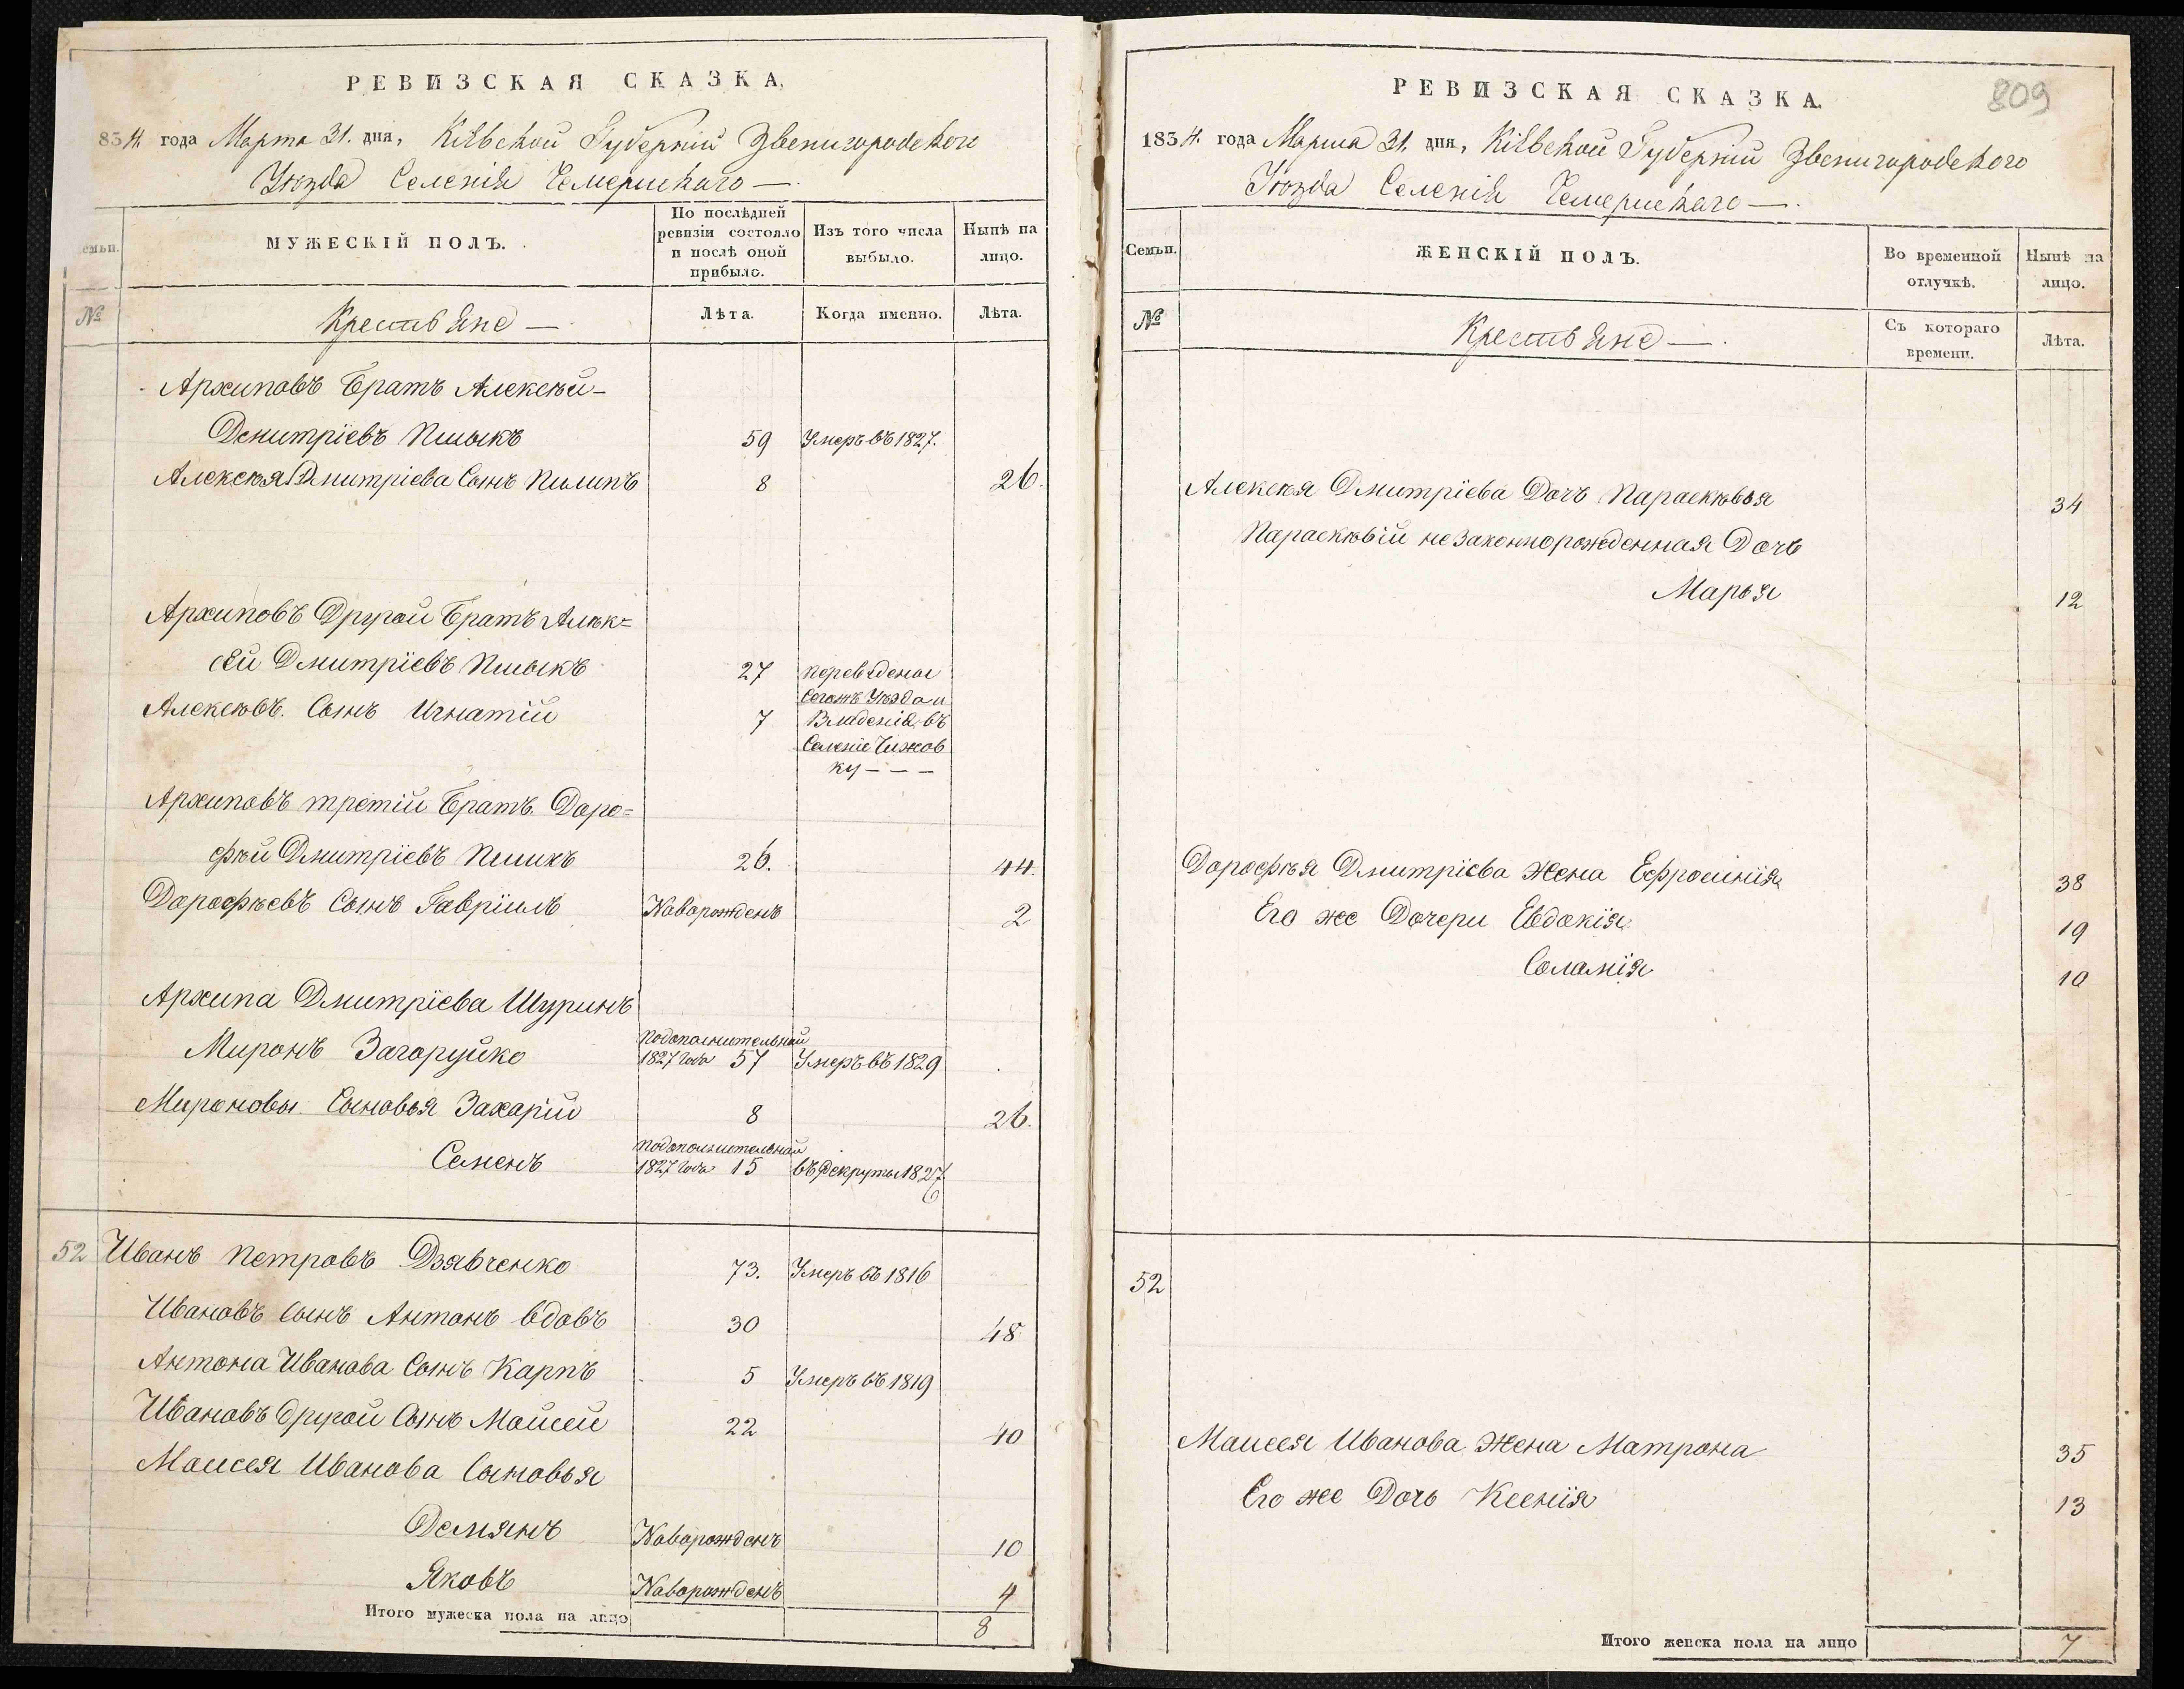 РЕВИЗСКАЯ СКАЗКА,
834. года Марта 31. дня, Кіевской Губерніи Звенигородского
Уезда Селенія Чемерискаго —.
емьи.
МУЖЕСКІЙ ПОЛЪ.
По послѣдней ревизіи состояло и послѣ оной прибыло.
Изъ того числа выбыло.
Нынѣ на лицо.
№
Крестьяне —.
Лѣта.
Когда именно.
Лѣта.
Архиповъ Братъ Алексѣй-
Демитріевъ Пшыкъ 59 Умеръ въ 1827.
Алексѣя Дмитріева Сынъ Пилипъ 8 26.
Архиповъ Другой Братъ Алек=
сѣй Дмитріевъ Пшыкъ 27 переведены
Сегожъ Уѣзда и
Алексѣевъ. Сынъ Игнатій 7 Владенія въ
Селеніе Чижов
ку - - -
Архиповъ третій Братъ. Доро=
фѣй Дмитріевъ Пшикъ 26. 44.
Дорофѣевъ Сынъ Гавріилъ Новорожденъ 2
Архипа Дмитріева Шуринъ
Миронъ Загоруйко подополнительной
1827 года 57 Умеръ въ 1829
Мироновы Сыновья Захарій 8 26.
Семенъ подополнительной
1827 года 15 въ Рекруты 1827
52 Иванъ Петровъ Дзявченко 73. Умеръ въ 1816
Ивановъ Сынъ Антонъ вдовъ 30 48
Антона Иванова Сынъ Карпъ 5 Умеръ въ 1819
Ивановъ другой Сынъ Мойсей 22 40
Моисея Иванова Сыновья
Демянъ Новорожденъ 10
Яковъ Новорожденъ 4
Итого мужеска пола на лицо 8
РЕВИЗСКАЯ СКАЗКА.
809
1834. года Марта 31. дня, Кіевской Губерніи Звенигородского
Уезда Селенія Чемерискаго —.
Семьи.
ЖЕНСКІЙ ПОЛЪ.
Во временной отлучкѣ.
Нынѣ на лицо.
№
Крестьяне —.
Съ котораго времени.
Лѣта.
Алексѣя Дмитріева Дочъ Параскѣвья 34
Параскѣвіи незаконнорожденная Дочь
Марья 12
Дорофѣя Дмитріева Жена Ефросинія 38
Его же Дочери Евдокія 19
Соломія 10
52
Моисея Иванова Жена Матрона 35
Его же Дочь Ксенія 13
Итого женска пола на лицо 7